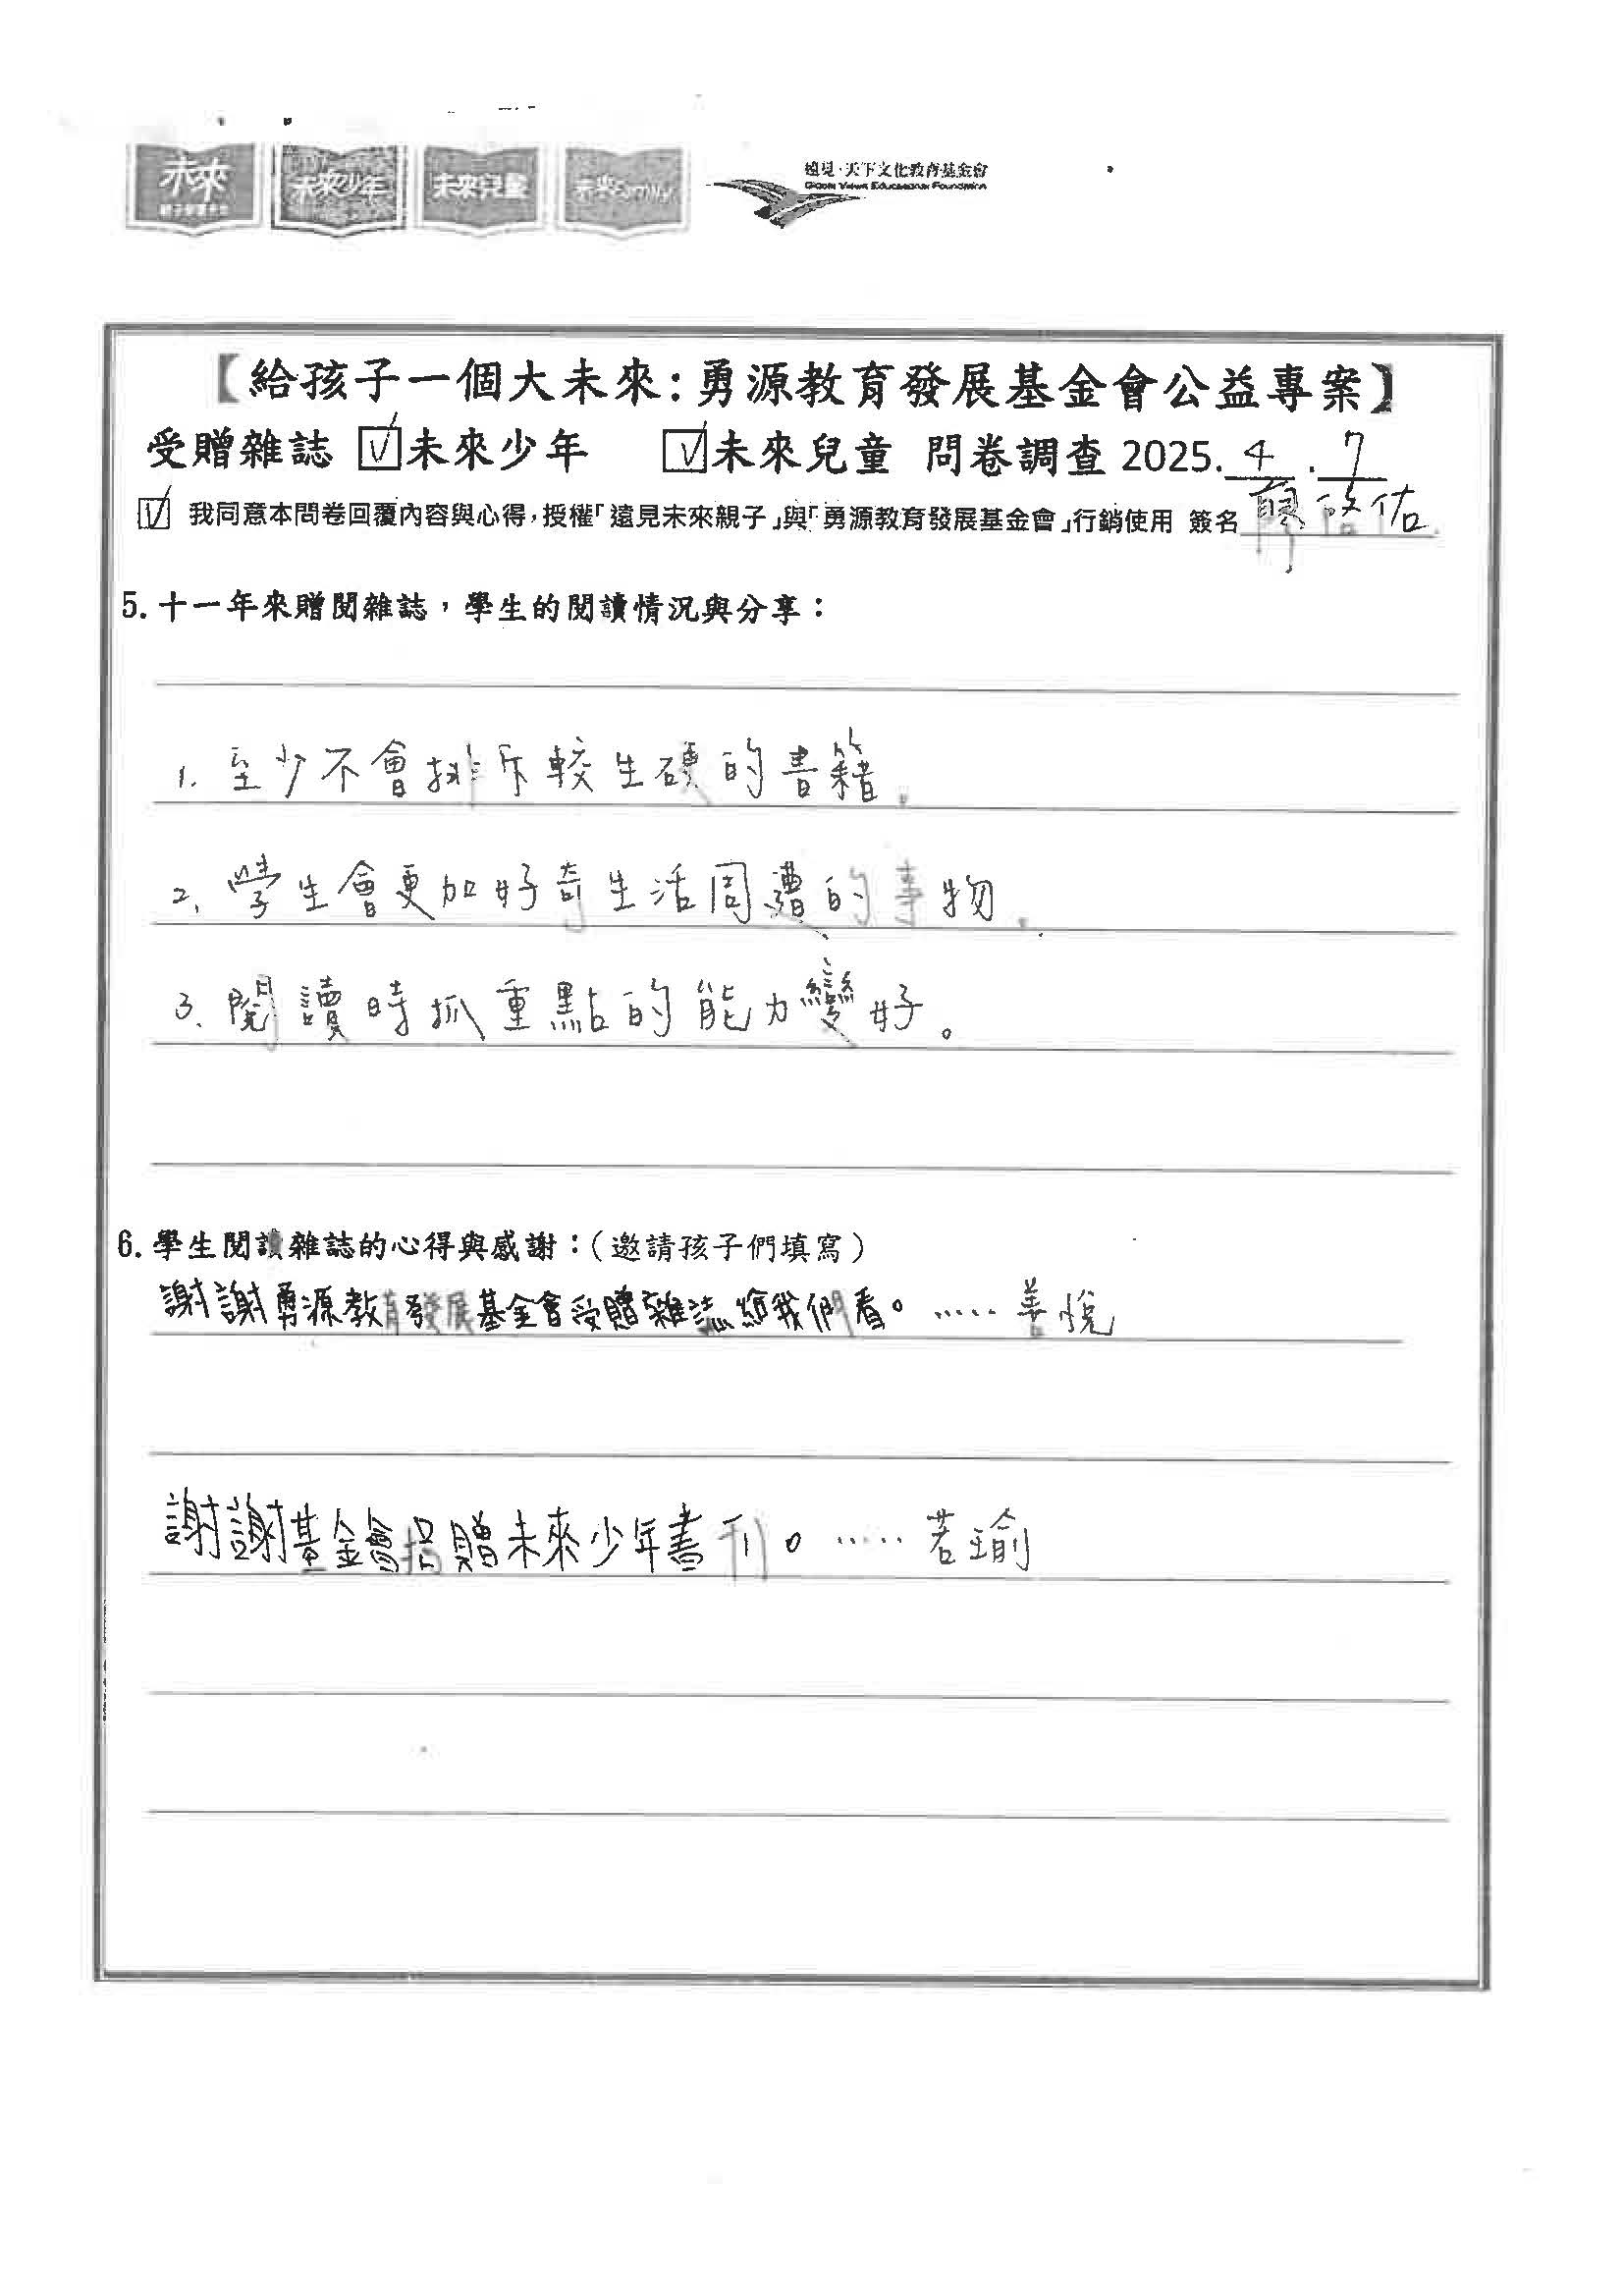 未來
未來少年
未來兒童
未來Family
遠見·天下文化教育基金會
Global Views Educational Foundation
【給孩子一個大未來:勇源教育發展基金會公益專案】
受贈雜誌 ☑未來少年 ☑未來兒童 問卷調查 2025.4.7
☑ 我同意本問卷回覆內容與心得,授權「遠見未來親子」與「勇源教育發展基金會」行銷使用 簽名 廖啟佑
5.十一年來贈閱雜誌,學生的閱讀情況與分享:
1. 至少不會排斥較生硬的書籍。
2. 學生會更加好奇生活周遭的事物。
3. 閱讀時抓重點的能力變好。
6.學生閱讀雜誌的心得與感謝:(邀請孩子們填寫)
謝謝勇源教育發展基金會受贈雜誌給我們看。……善悅
謝謝基金會捐贈未來少年書刊。……若瑜